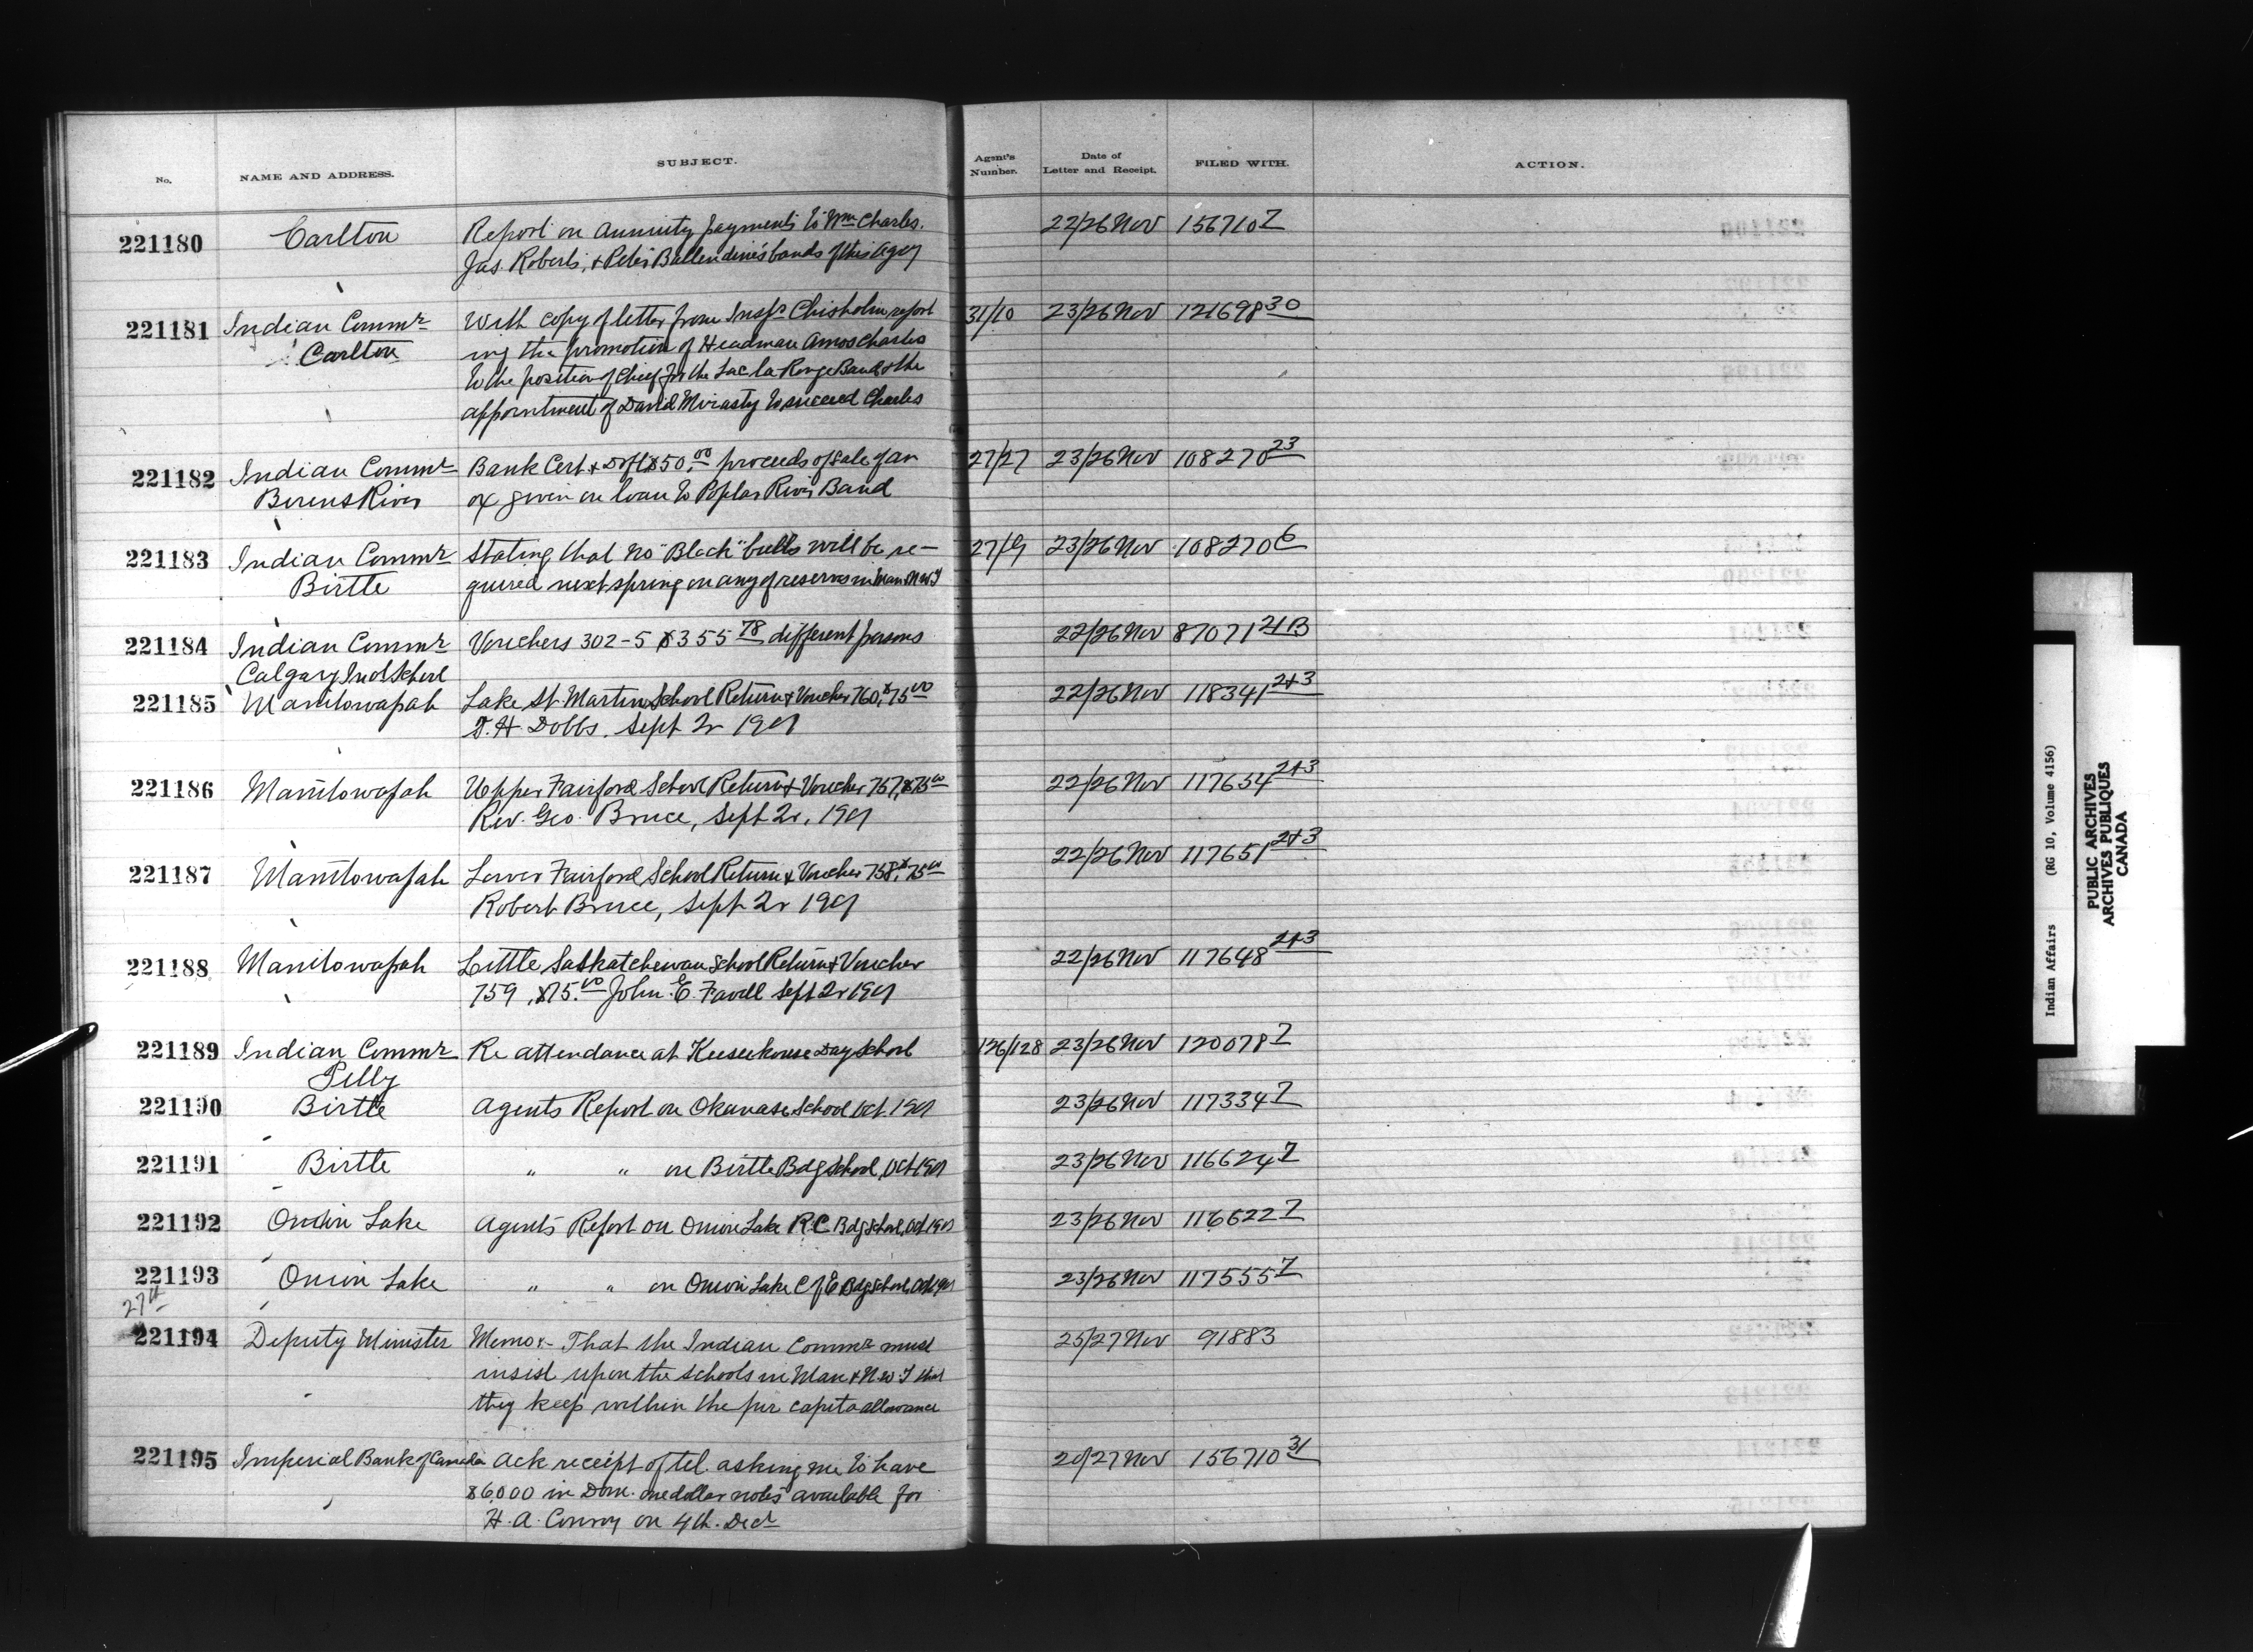 No. NAME AND ADDRESS. SUBJECT. Agent's Number. Date of Letter and Receipt. FILED WITH. ACTION.
221180 Carlton Report on Annuity payments to Wm Charles. 22/26 Nov 156710 7
Jas Roberts, & Peter Ballendine's bands of this Agcy
221181 Indian Commr With copy of letter from Inspr Chisholm report 31/10 23/26 Nov 121698 30
Carlton ing the promotion of Headman Amos Charles
to the position of Chief for the Lac la Ronge Band & the
appointment of David Mirasty to succeed Charles
221182 Indian Commr Bank Cert & Dft $50.00 proceeds of sale of an 27/27 23/26 Nov 108270 23
Berens River ox given on loan to Poplar River Band
221183 Indian Commr Stating that no "Black" bulls will be re- 27/9 23/26 Nov 108270 6
Birtle quired next spring on any of reserves in Man & N.W.T
221184 Indian Commr Vouchers 302-5 $355 78 different persons 22/26 Nov 87071 21B
Calgary Indl School
221185 Manitowapah Lake St. Martin School Return & Voucher 760, $75 00 22/26 Nov 118341 2+3
T. H. Dobbs. Sept 2r 1901
221186 Manitowapah Upper Fairford School Return & Voucher 757, $75 00 22/26 Nov 117654 2+3
Rev. Geo. Bruce, Sept 2r, 1901
221187 Manitowapah Lower Fairford School Return & Voucher 758, $75 00 22/26 Nov 117651 2+3
Robert Bruce, Sept 2r 1901
221188 Manitowapah Little Saskatchewan School Return & Voucher 22/26 Nov 117648 2+3
759, $75.00 John E. Favell Sept 2r 1901
221189 Indian Commr Re attendance at Keeseekouse Day School 126/128 23/26 Nov 120078 7
Pelly
221190 Birtle Agents Report on Okanase School Oct. 1901 23/26 Nov 117334 7
221191 Birtle " " on Birtle Bdg School, Oct 1901 23/26 Nov 116624 7
221192 Onion Lake Agents Report on Onion Lake R.C. Bdg School, Oct 1901 23/26 Nov 116622 7
221193 Onion Lake " " on Onion Lake C of E Bdg School, Oct 1901 23/26 Nov 117555 7
27th
221194 Deputy Minister Memo:- That the Indian Commr must 25/27 Nov 91883
insist upon the schools in Man & N.W.T that
they keep within the per capita allowance
221195 Imperial Bank of Canada Ack receipt of tel. asking me to have 20/27 Nov 156710 31
$6000 in Dom. one dollar notes available for
H. A. Conroy on 4th. Decr
Indian Affairs (RG 10, Volume 4156)
PUBLIC ARCHIVES
ARCHIVES PUBLIQUES
CANADA